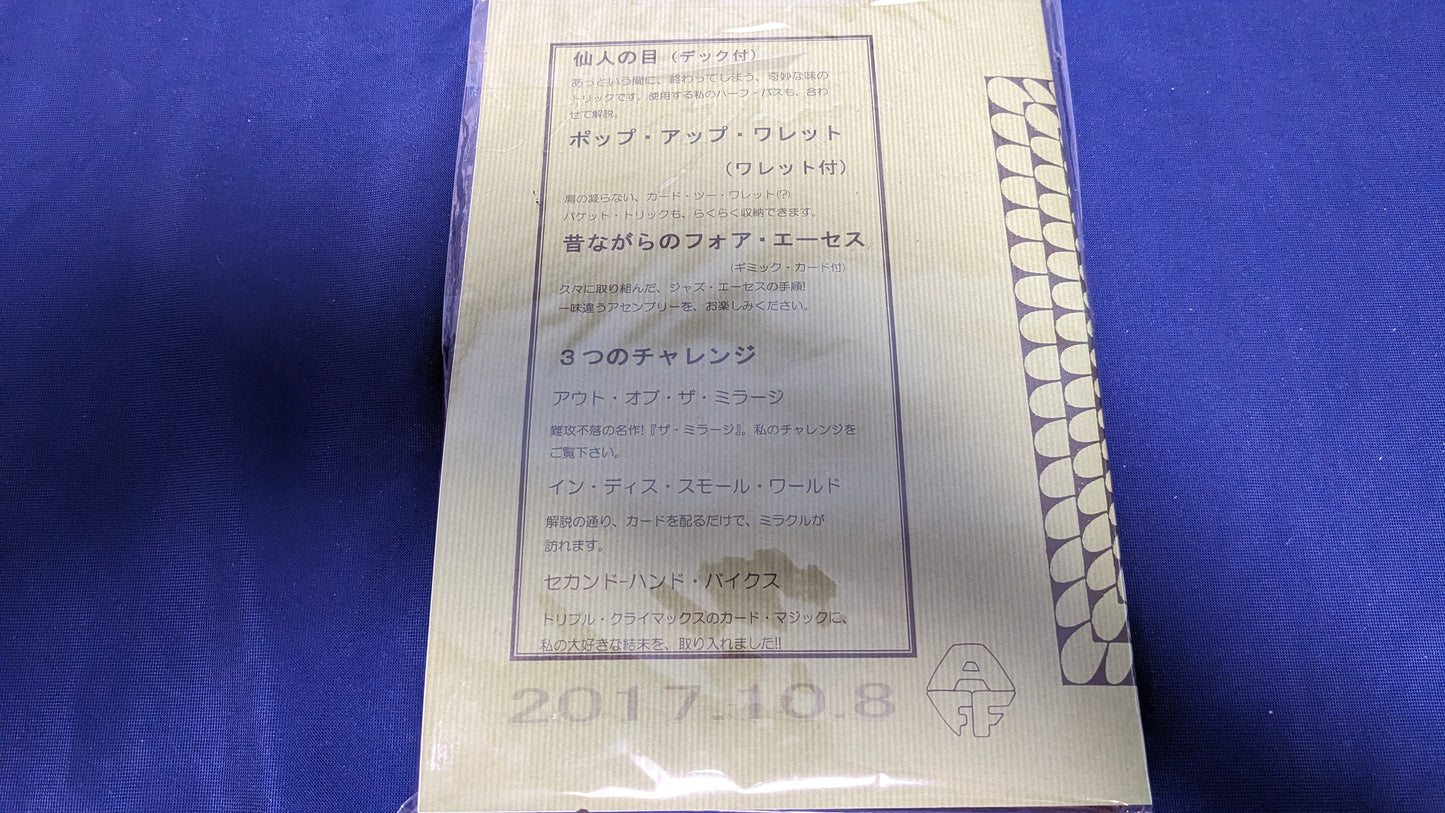 仙人の目（デック付）
あっという間に、終わってしまう、奇妙な味の
トリックです。使用する私のハーフ・パスも、合わ
せて解説。
ポップ・アップ・ワレット
（ワレット付）
肩の凝らない、カード・ツー・ワレット(?)
パケット・トリックも、らくらく収納できます。
昔ながらのフォア・エーセス
(ギミック・カード付)
久々に取り組んだ、ジャズ・エーセスの手順!
一味違うアセンブリーを、お楽しみください。
３つのチャレンジ
アウト・オブ・ザ・ミラージ
難攻不落の名作!『ザ・ミラージ』。私のチャレンジを
ご覧下さい。
イン・ディス・スモール・ワールド
解説の通り、カードを配るだけで、ミラクルが
訪れます。
セカンド-ハンド・バイクス
トリプル・クライマックスのカード・マジックに、
私の大好きな結末を、取り入れました!!
2017.10.8
AFF